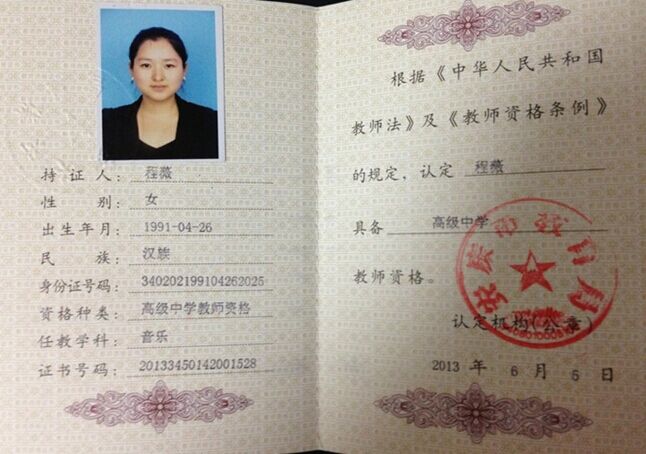 持证人： 程薇
性别： 女
出生年月： 1991-04-26
民族： 汉族
身份证号码： 340202199104262025
资格种类： 高级中学教师资格
任教学科： 音乐
证书号码： 20133450142001528
根据《中华人民共和国
教师法》及《教师资格条例》
的规定，认定 程薇
具备 高级中学
教师资格。
安庆市教育局
认定机构(公章)
2013 年 6 月 5 日